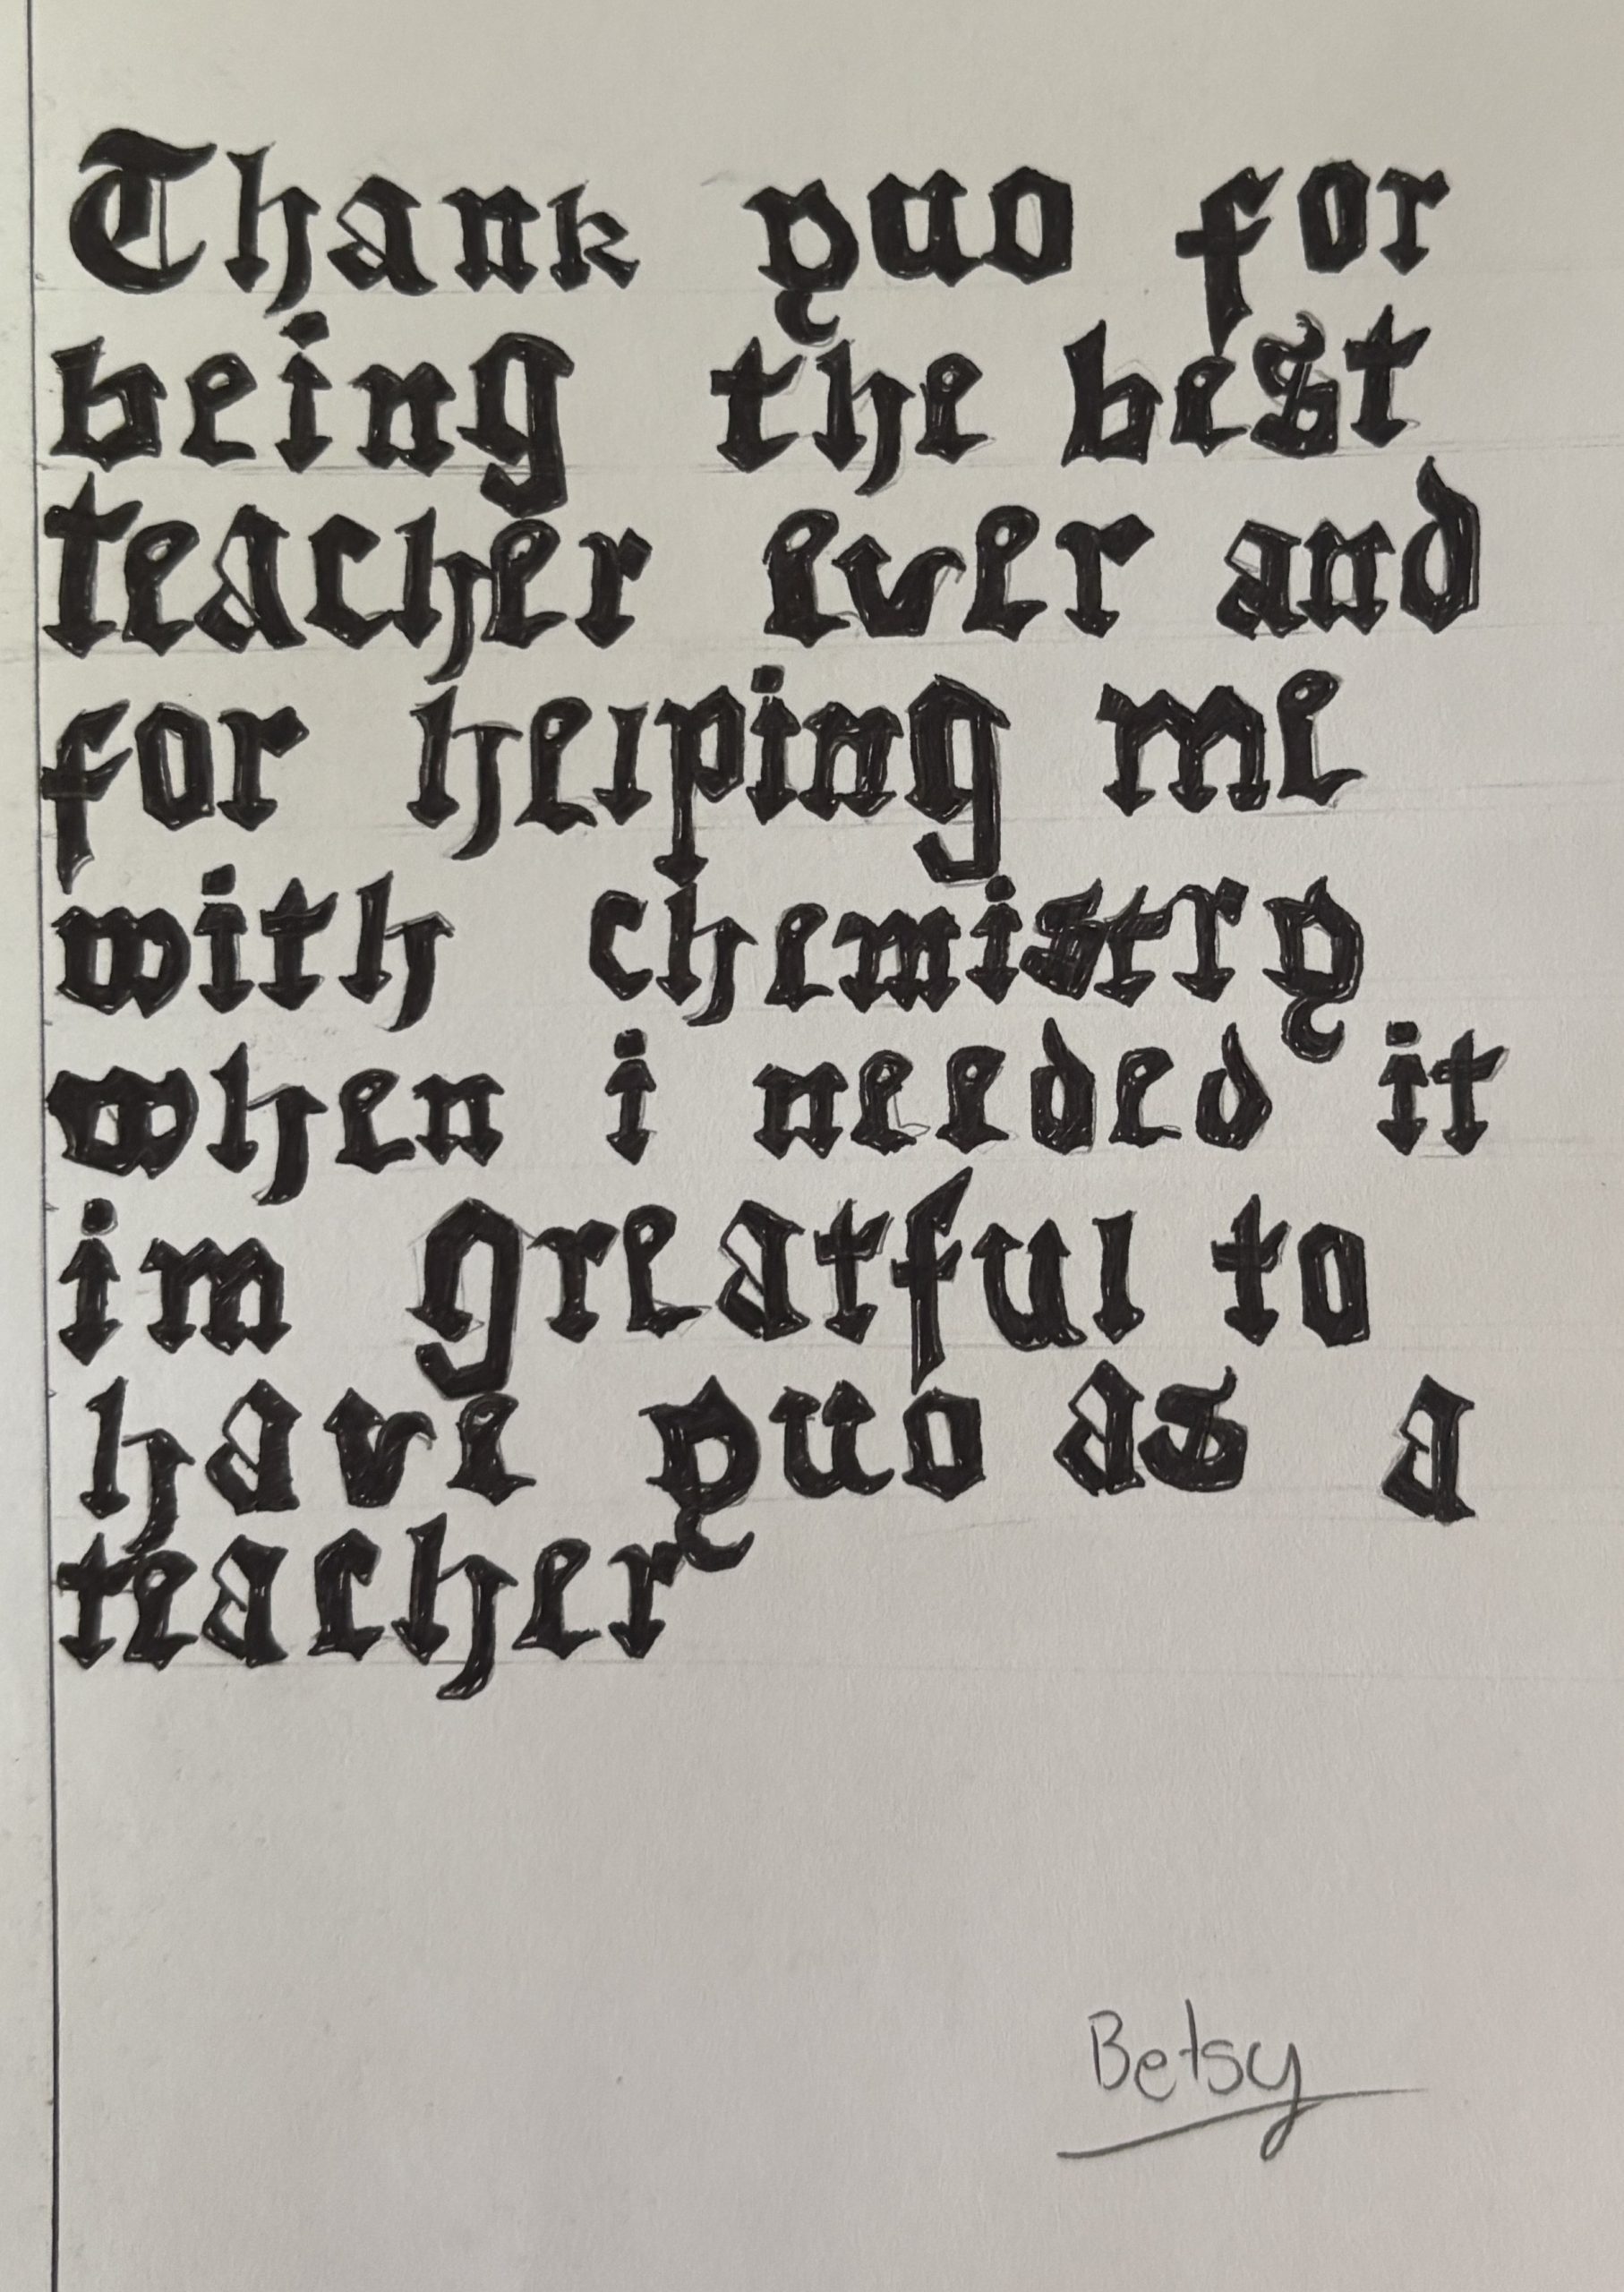 Thank yuo for
being the best
teacher ever and
for helping me
with chemistry
when i needed it
im greatful to
have yuo as a
teacher
Betsy